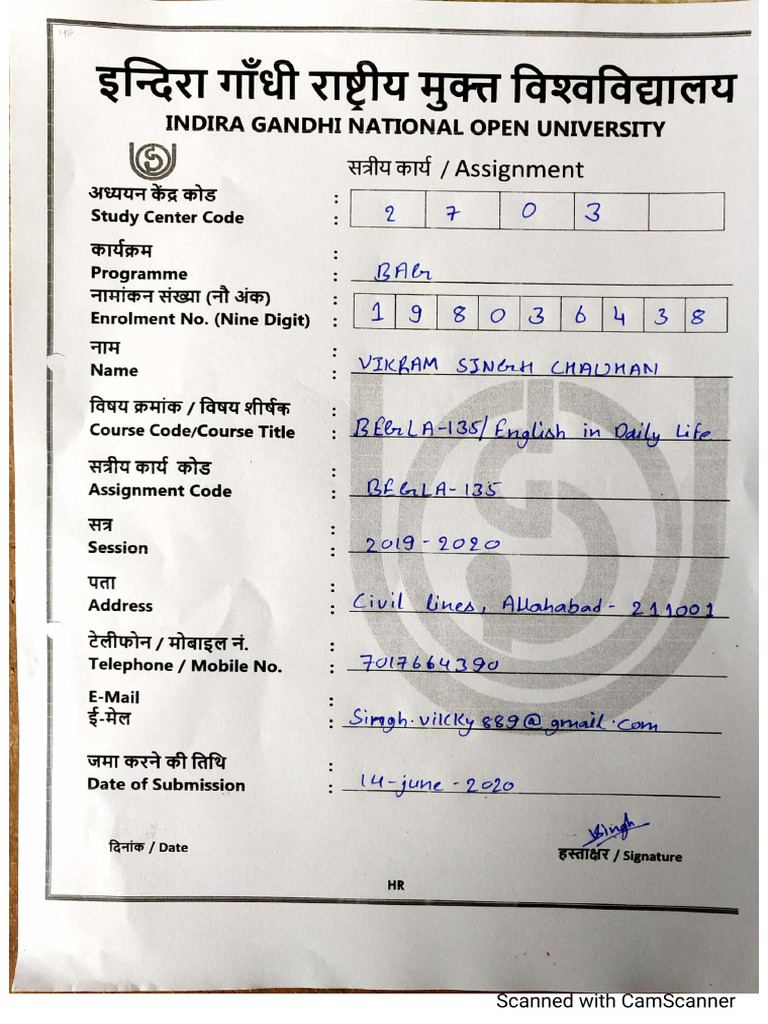 HR
इन्दिरा गाँधी राष्ट्रीय मुक्त विश्वविद्यालय
INDIRA GANDHI NATIONAL OPEN UNIVERSITY
सत्रीय कार्य / Assignment
अध्ययन केंद्र कोड :
Study Center Code : 2 7 0 3
कार्यक्रम :
Programme : BAG
नामांकन संख्या (नौ अंक) :
Enrolment No. (Nine Digit) : 1 9 8 0 3 6 4 3 8
नाम :
Name : VIKRAM SINGH CHAUHAN
विषय क्रमांक / विषय शीर्षक :
Course Code/Course Title : BEGLA-135/English in Daily Life
सत्रीय कार्य कोड :
Assignment Code : BEGLA-135
सत्र :
Session : 2019-2020
पता :
Address : Civil lines, Allahabad - 211001
टेलीफोन / मोबाइल नं. :
Telephone / Mobile No. : 7017664390
E-Mail :
ई-मेल : Singh.vikky889@gmail.com
जमा करने की तिथि :
Date of Submission : 14-june-2020
Singh
दिनांक / Date हस्ताक्षर / Signature
HR
Scanned with CamScanner